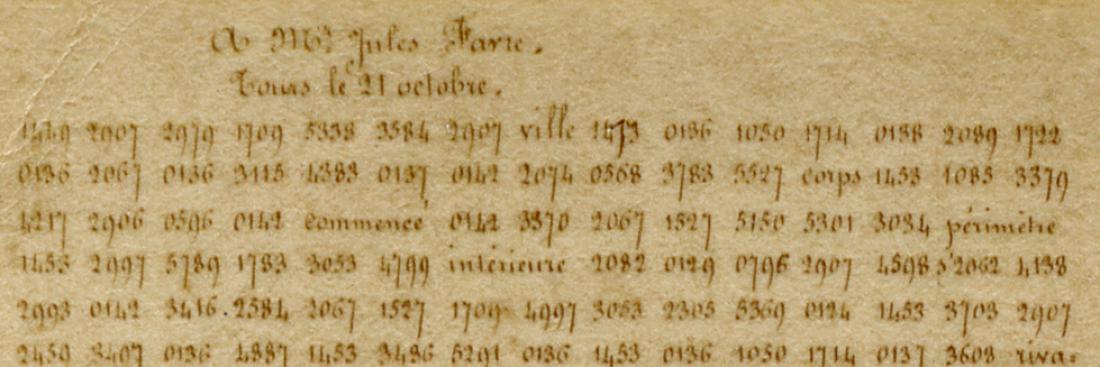 A Mr Jules Favre.
Tours le 21 octobre.
1449 2907 2979 1709 5338 3584 2907 ville 1473 0136 1050 1714 0138 2089 1722
0136 2067 0136 3115 4383 0137 0142 2074 0568 3783 5527 corps 1453 1085 3379
4217 2906 0596 0142 commence 0142 3370 2067 1527 5150 5301 3034 périmètre
1453 2997 5789 1783 3053 4799 intérieure 2082 0129 0796 2907 4598 s'2062 4138
2993 0142 3416. 2584 2067 1527 1709 4997 3053 2305 5369 0124 1453 3703 2907
2459 3407 0136 4887 1453 3486 5291 0136 1453 0136 1050 1714 0137 3608 riva=